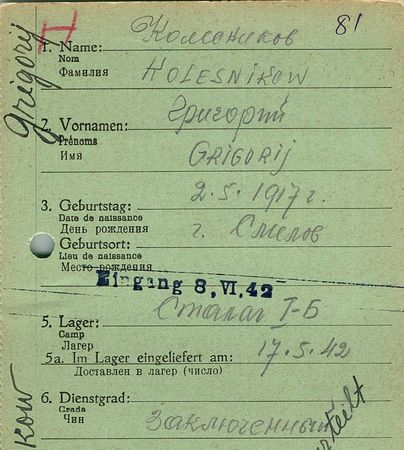 81
H
Grigorij
Колесников
1. Name:
Nom
Фамилия
KOLESNIKOW
Григорий
2. Vornamen:
Prénoms
Имя
GRIGORIJ
2.5.1917 г.
3. Geburtstag:
Date de naissance
День рождения
г. Смилов
Geburtsort:
Lieu de naissance
Место рождения
Eingang 8, VI. 42
Сталаг I-Б
5. Lager:
Camp
Лагер
17.5.42
5a. Im Lager eingeliefert am:
Доставлен в лагер (число)
6. Dienstgrad:
Grade
Чин
заключенный
kow